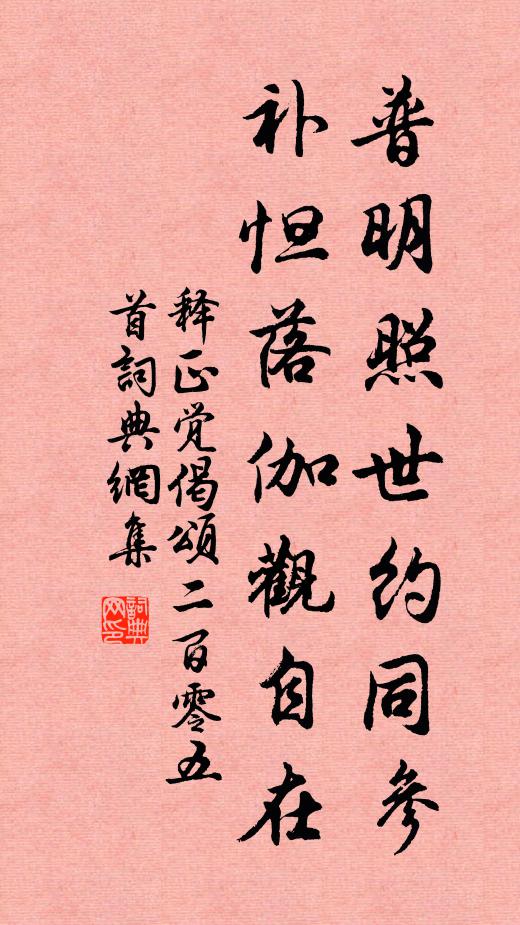 普明照世约同參
补怛落伽觀自在
释正觉偈頌二百零五
首詞典網集
詞典網印